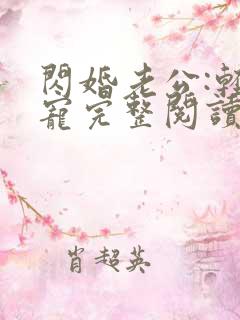 閃婚老公:
寵完整閱讀
肖超英